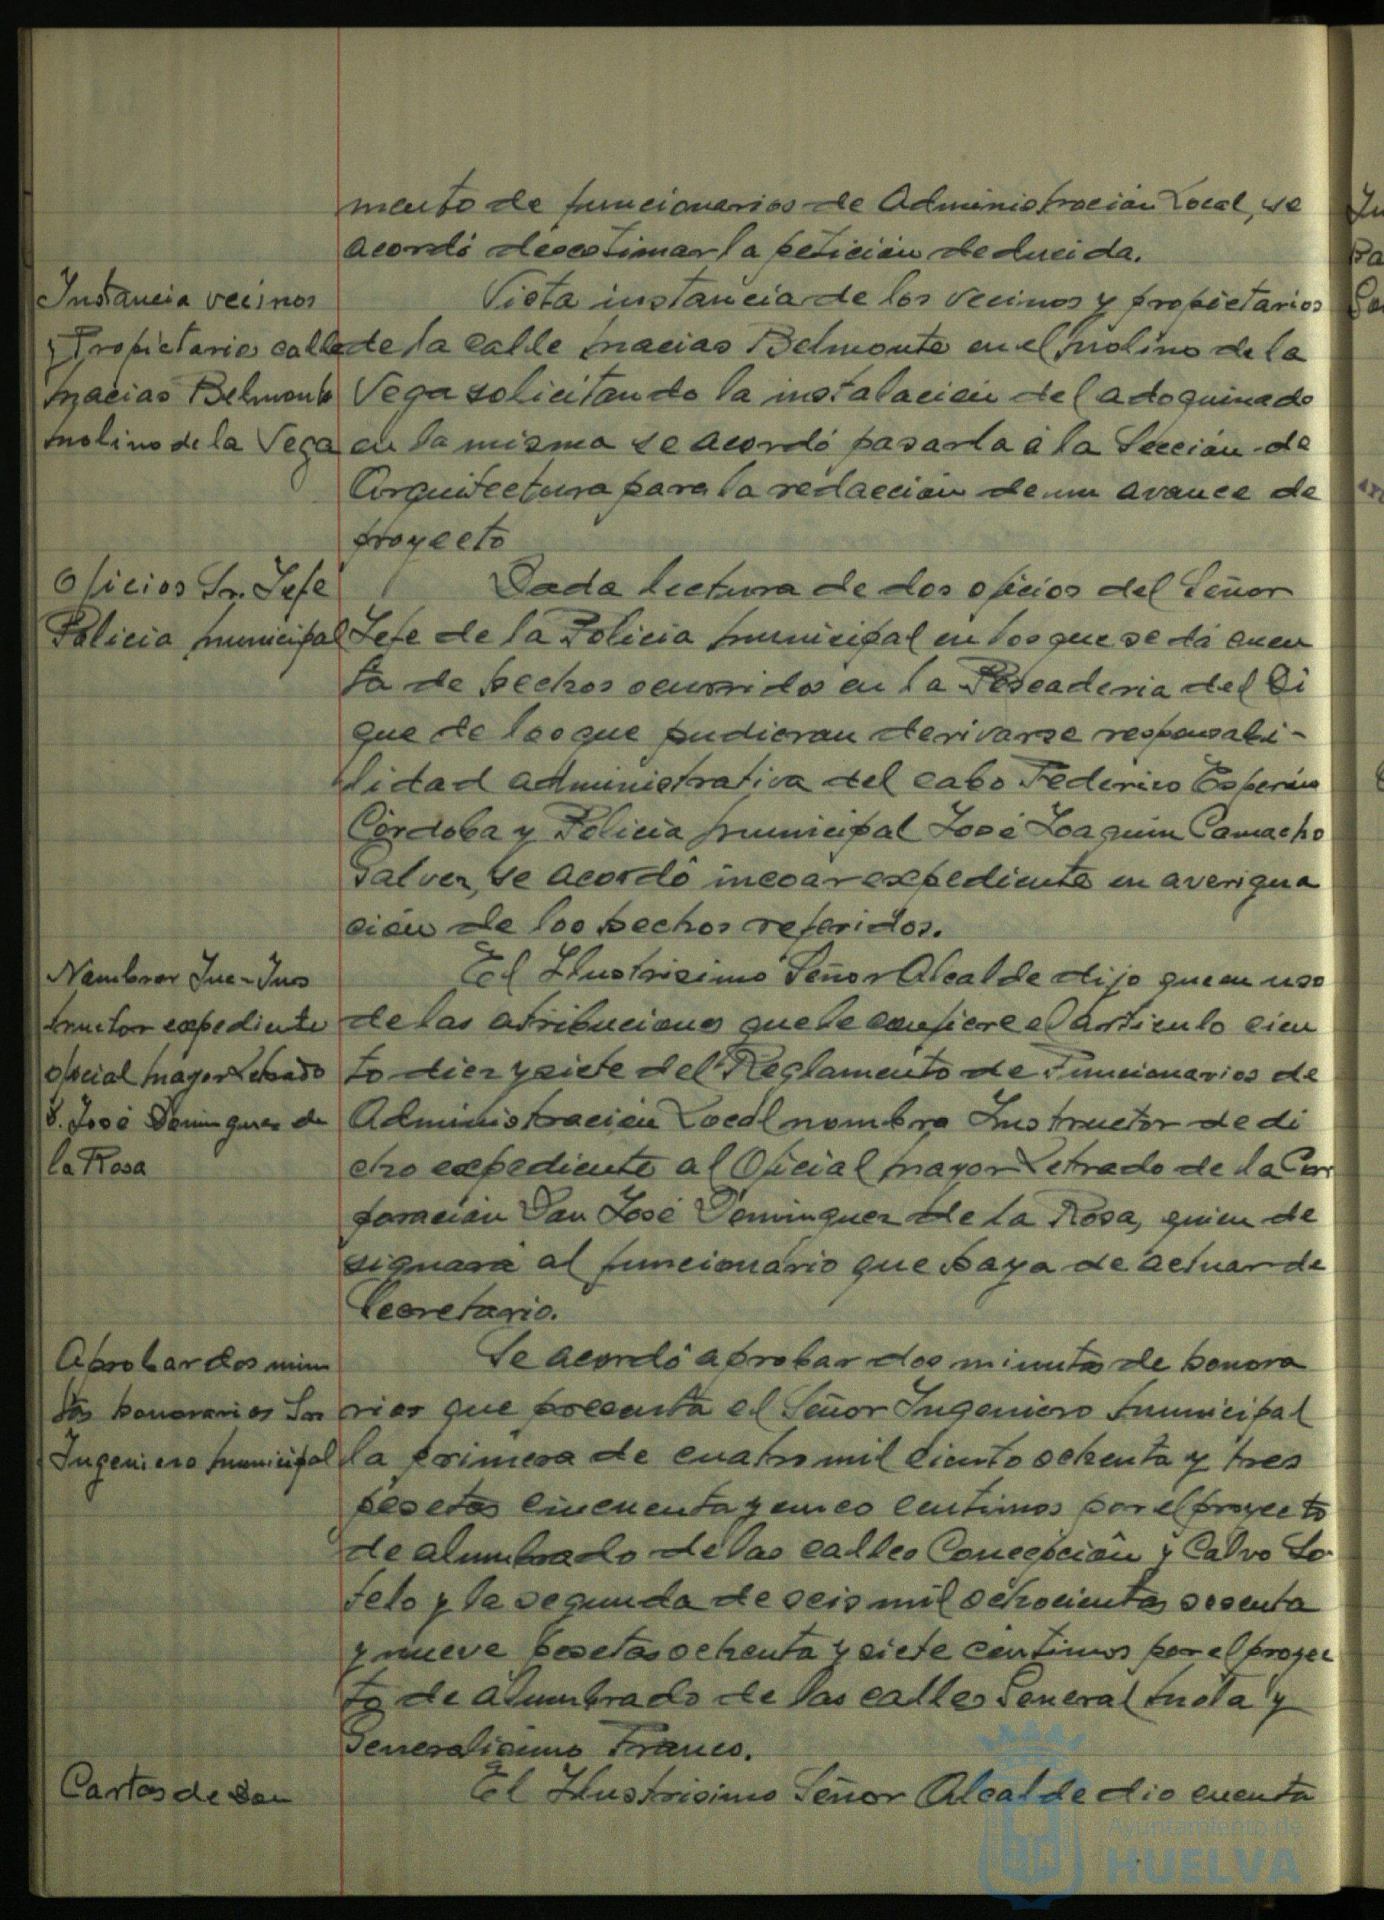 mento de funcionarios de Administración Local, se
acordó desestimar la petición deducida.
Instancia vecinos
y Propietarios calle
Macias Belmonte
molino de la Vega
Vista instancia de los vecinos y propietarios
de la calle Macias Belmonte en el Molino de la
Vega solicitando la instalación del adoquinado
en la misma se acordó pasarla a la Sección de
Arquitectura para la redacción de un avance de
proyecto
Oficios Sr. Jefe
Policia Municipal
Dada lectura de dos oficios del Señor
Jefe de la Policia Municipal en los que se dá cuen
ta de hechos ocurridos en la Pescaderia del Di
que de los que pudieran derivarse responsabi-
lidad administrativa del cabo Federico
Córdoba y Policia Municipal José Joaquin Camacho
Galvez, se acordó incoar expediente en averigua
ción de los hechos referidos.
Nombrar Jue-Ins
tructor expediente
oficial mayor Letrado
D. José Dominguez de
la Rosa
El Ilustrisimo Señor Alcalde dijo que en uso
de las atribuciones que le confiere el articulo cien
to diez y siete del Reglamento de Funcionarios de
Administración Local nombra Instructor de di
cho expediente al Oficial Mayor Letrado de la Cor
poración Don José Dominguez de la Rosa, quien de
signará al funcionario que haya de actuar de
Secretario.
Aprobar dos minu
tas honorarios Sr
Ingeniero Municipal
Se acordó aprobar dos minutas de honora
rios que presenta el Señor Ingeniero Municipal
la primera de cuatro mil ciento ochenta y tres
pesetas cincuenta y cinco centimos por el proyecto
de alumbrado de las calles Concepción y Calvo So
telo y la segunda de seis mil ochocientas sesenta
y nueve pesetas ochenta y siete céntimos por el proyec
to de alumbrado de las calles General Mola y
Generalisimo Franco.
Cartas de Don
El Ilustrisimo Señor Alcalde dio cuenta
Ayuntamiento de
HUELVA